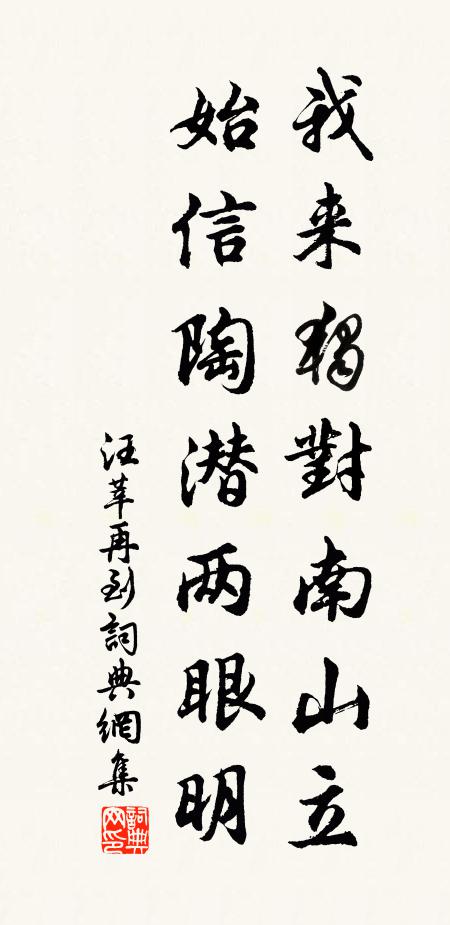 我来獨對南山立
始信陶潜两眼明
汪莘再到詞典網集
詞典网印